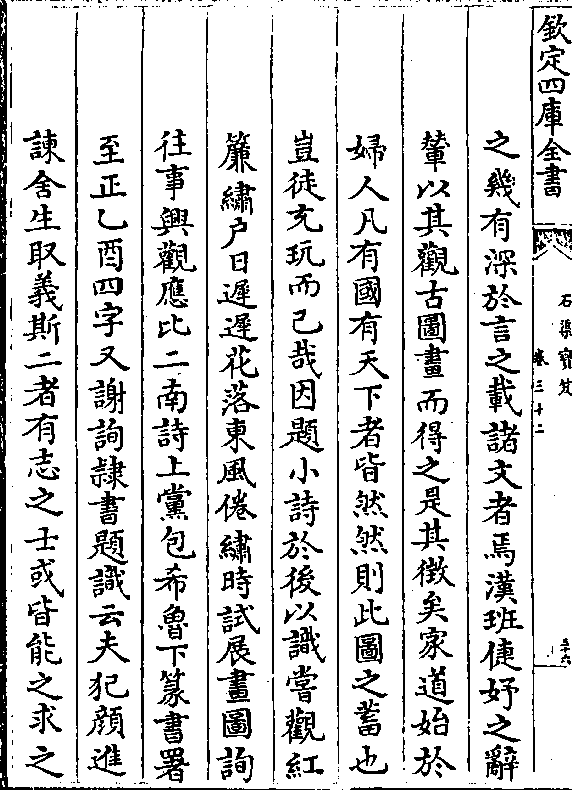 欽定四庫全書
石渠寶笈
卷三十二
三六
之幾有深於言之載諸文者焉漢班倢妤之辭
輦以其觀古圖畫而得之是其徴矣家道始於
婦人凡有國有天下者皆然然則此圖之蓄也
豈徒充玩而已哉因題小詩於後以識嘗觀紅
簾繡户日遲遲花落東風倦繡時試展畫圖詢
往事興觀應比二南詩上黨包希魯下篆書署
至正乙酉四字又謝詢隷書題識云夫犯顔進
諫舍生取義斯二者有志之士或皆能之求之